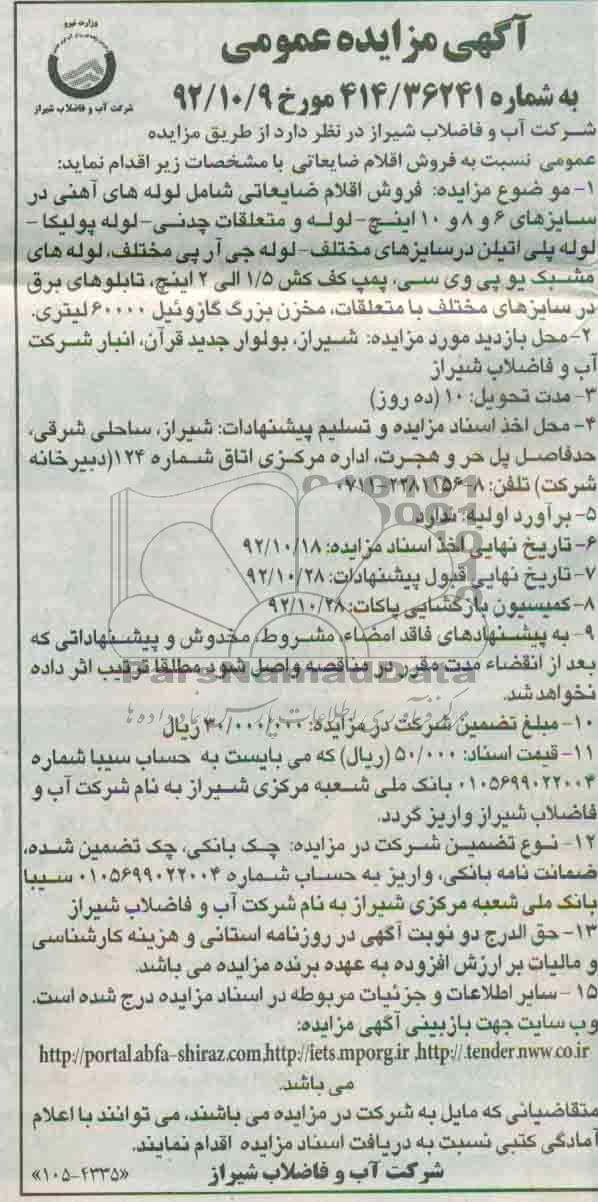 آگهی مزایده عمومی
وزارت نیرو
شرکت آب و فاضلاب شیراز
به شماره ۴۱۴/۳۶۲۴۱ مورخ ۹۲/۱۰/۹
شرکت آب و فاضلاب شیراز در نظر دارد از طریق مزایده
عمومی نسبت به فروش اقلام ضایعاتی با مشخصات زیر اقدام نماید:
۱- موضوع مزایده: فروش اقلام ضایعاتی شامل لوله های آهنی در
سایزهای ۶ و ۸ و ۱۰ اینچ- لوله و متعلقات چدنی- لوله پولیکا -
لوله پلی اتیلن در سایزهای مختلف- لوله جی آر پی مختلف، لوله های
مشبک یو پی وی سی، پمپ کف کش ۱/۵ الی ۲ اینچ، تابلوهای برق
در سایزهای مختلف با متعلقات، مخزن بزرگ گازوئیل ۶۰۰۰۰ لیتری.
۲- محل بازدید مورد مزایده: شیراز، بولوار جدید قرآن، انبار شرکت
آب و فاضلاب شیراز
۳- مدت تحویل: ۱۰ (ده روز)
۴- محل اخذ اسناد مزایده و تسلیم پیشنهادات: شیراز، ساحلی شرقی،
حدفاصل پل حر و هجرت، اداره مرکزی اتاق شماره ۱۲۴(دبیرخانه
شرکت) تلفن: ۸-۲۲۸۱۱۵۶-۰۷۱۱
۵- برآورد اولیه: ندارد
۶- تاریخ نهایی اخذ اسناد مزایده: ۹۲/۱۰/۱۸
۷- تاریخ نهایی قبول پیشنهادات: ۹۲/۱۰/۲۸
۸- کمیسیون بازگشایی پاکات: ۹۲/۱۰/۲۸
۹- به پیشنهادهای فاقد امضاء، مشروط، مخدوش و پیشنهاداتی که
بعد از انقضاء مدت مقرر در مناقصه واصل شود مطلقا ترتیب اثر داده
ParsNamadData
نخواهد شد.
۱۰- مبلغ تضمین شرکت در مزایده: ۳۰/۰۰۰/۰۰۰ ریال
۱۱- قیمت اسناد: ۵۰/۰۰۰ (ریال) که می بایست به حساب سیبا شماره
۰۱۰۵۶۹۹۰۲۲۰۰۴ بانک ملی شعبه مرکزی شیراز به نام شرکت آب و
فاضلاب شیراز واریز گردد.
۱۲- نوع تضمین شرکت در مزایده: چک بانکی، چک تضمین شده،
ضمانت نامه بانکی، واریز به حساب شماره ۰۱۰۵۶۹۹۰۲۲۰۰۴ سیبا
بانک ملی شعبه مرکزی شیراز به نام شرکت آب و فاضلاب شیراز
۱۳- حق الدرج دو نوبت آگهی در روزنامه استانی و هزینه کارشناسی
و مالیات بر ارزش افزوده به عهده برنده مزایده می باشد.
۱۵- سایر اطلاعات و جزئیات مربوطه در اسناد مزایده درج شده است.
وب سایت جهت بازبینی آگهی مزایده:
http://portal.abfa-shiraz.com,http://iets.mporg.ir ,http://.tender.nww.co.ir
می باشد.
متقاضیانی که مایل به شرکت در مزایده می باشند، می توانند با اعلام
آمادگی کتبی نسبت به دریافت اسناد مزایده اقدام نمایند.
شرکت آب و فاضلاب شیراز
«۱۰۵-۴۳۳۵»